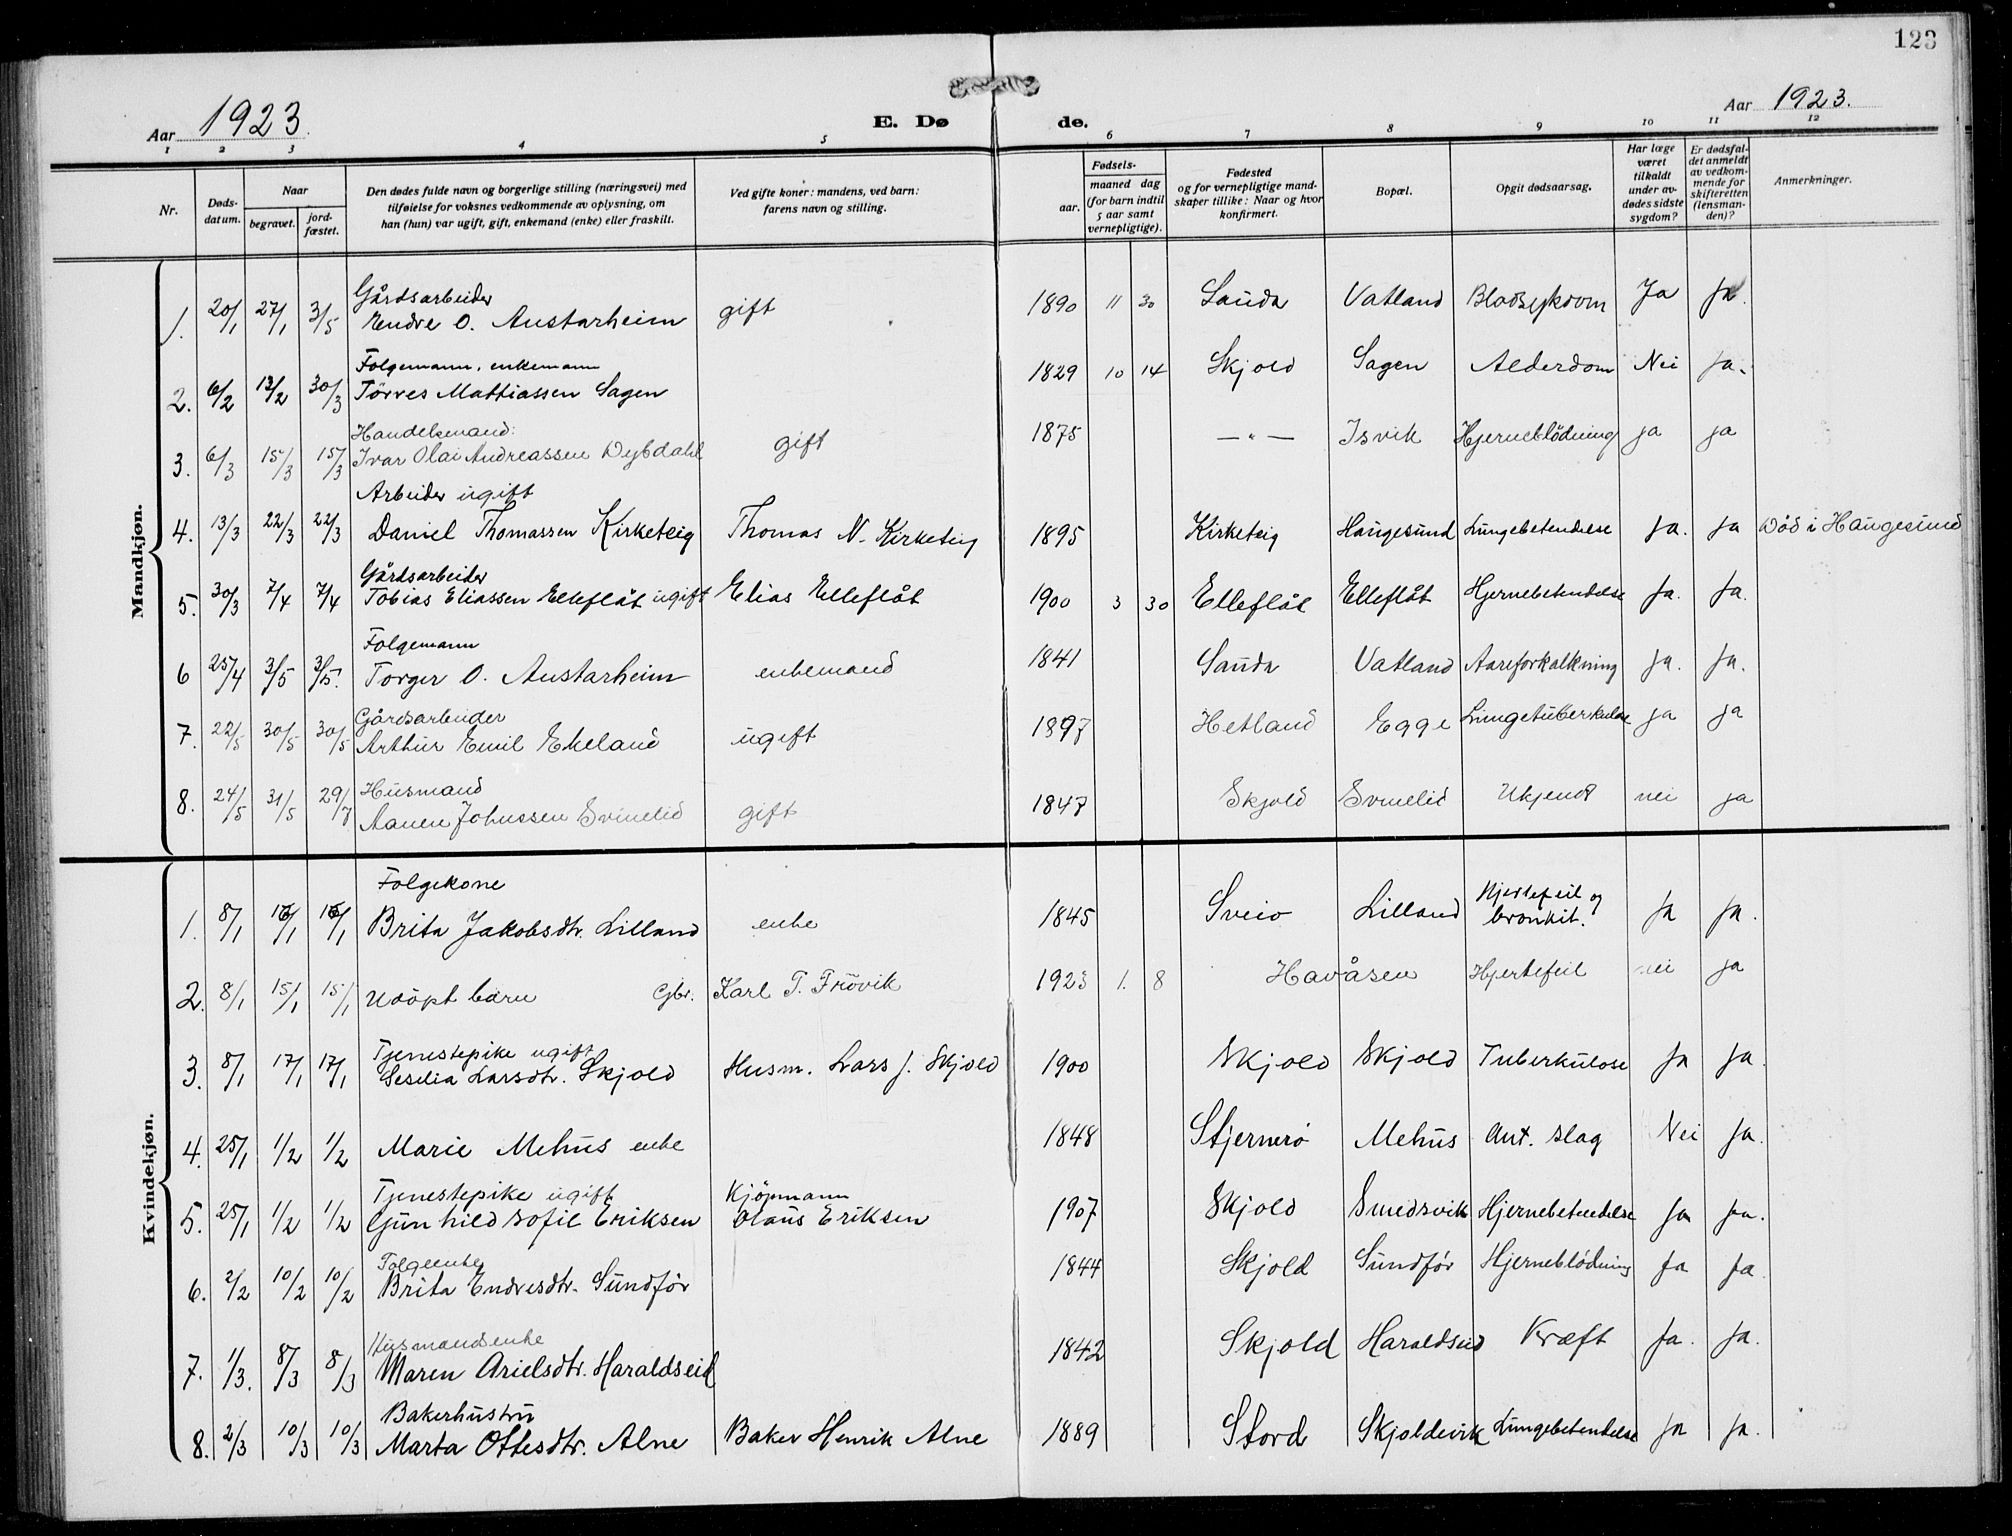 123
Aar 1923.
E. Dø
de.
Aar 1923.
1 2 3 4 5 6 7 8 9 10 11 12
Nr.
Døds-
datum.
Naar
begravet.
jord-
fæstet.
Den dødes fulde navn og borgerlige stilling (næringsvei) med
tilføielse for voksnes vedkommende av oplysning, om
han (hun) var ugift, gift, enkemand (enke) eller fraskilt.
Ved gifte koner: mandens, ved barn:
farens navn og stilling.
Fødsels-
aar.
maaned dag
(for barn indtil
5 aar samt
vernepligtige).
Fødested
og for vernepligtige mand-
skaper tillike: Naar og hvor
konfirmert.
Bopæl.
Opgit dødsaarsag.
Har læge
været
tilkaldt
under av-
dødes sidste
sygdom?
Er dødsfal-
det anmeldt
av vedkom-
mende for
skifteretten
(lensman-
den)?
Anmerkninger.
Mandkjøn.
Gårdsarbeider
1. 20/1 27/1 3/5 Endre O. Austarheim gift 1890 11 30 Sauda Vatland Blodsykdom Ja Ja.
Folgemann, enkemann
2. 6/2 13/2 30/3 Törres Mattiassen Sagen 1829 10 14 Skjold Sagen Alderdom Nei Ja.
Handelsmand:
3. 6/3 15/3 15/3 Ivar Olai Andreassen Dybdahl gift 1875 — " — Isvik Hjerneblödning ja ja
Arbeider ugift
4. 13/3 22/3 22/3 Daniel Thomassen Kirketeig Thomas N. Kirketeig 1895 Kirketeig Haugesund Lungebetendelse Ja. Ja Död i Haugesund
Gårdsarbeider
5. 30/3 7/4 7/4 Tobias Eliassen Elleflåt ugift Elias Elleflåt 1900 3 30 Elleflåt Elleflåt Hjernebetendelse Ja. Ja.
Folgemann
6 25/4 3/5 3/5. Torger O. Austarheim enkemand 1841 Sauda Vatland Aareforkalkning Ja. Ja.
Gårdsarbeider
7. 22/5 30/5 30/5 Arthur Emil Ekeland ugift 1897 Hetland Egge Lungetuberkulose ja ja
Husmand
8. 24/5 31/5 29/7 Aanen Johnssen Svinelid gift 1847 Skjold Svinelid Ukjendt nei ja
Kvindekjøn.
Folgekone
1. 8/1 16/1 16/1 Brita Jakobsdtr. Lilland enke 1845 Sveio Lilland Hjertefeil og bronkit. Ja Ja.
2. 8/1 15/1 15/1 Udöpt barn Gbr. Karl T. Frövik 1923 1. 8 Havåsen Hjertefeil nei ja
Tjenestepike ugift
3. 8/1 17/1 17/1 Seselia Larsdtr. Skjold Husm. Lars J. Skjold 1900 Skjold Skjold Tuberkulose Ja Ja.
4. 25/1 1/2 1/2 Marie Mehus enke 1848 Stjernerö Mehus Ant. slag Nei Ja.
Tjenestepike ugift Kjöpmann
5. 25/1 1/2 1/2 Gunhild Sofie Eriksen Olaus Eriksen 1907 Skjold Smedsvik Hjernebetendelse Ja Ja.
Folgeenke
6. 2/2 10/2 10/2 Brita Endresdtr. Sundför 1844 Skjold Sundför Hjerneblödning Ja Ja.
Husmandsenke
7. 1/3. 8/3 8/3 Maren Arielsdtr. Haraldseid 1842 Skjold Haraldseid Kræft Ja. Ja.
Bakerhustru
8. 2/3 10/3 10/3 Marta Ottesdtr. Alne Baker Henrik Alne 1889 Stord Skjoldevik Lungebetendelse Ja Ja.